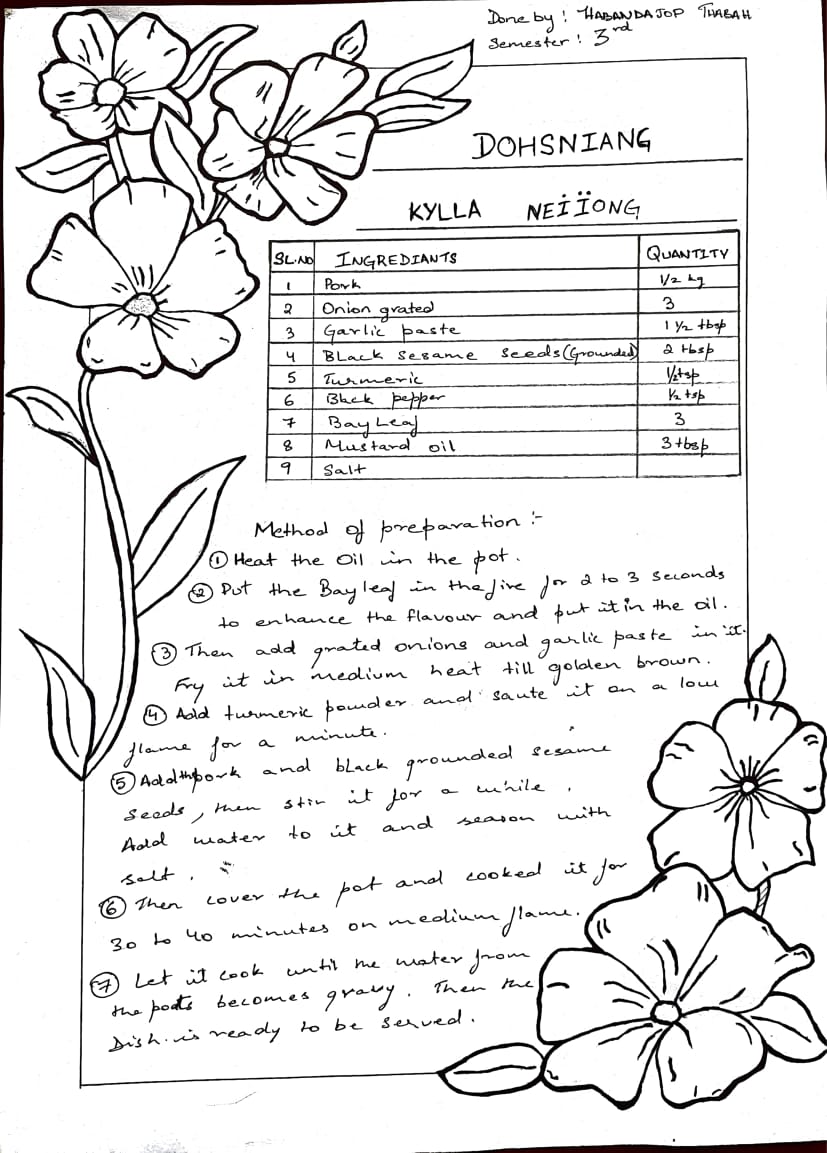 Done by : HABANDAJOP THABAH
Semester : 3rd
DOHSNIANG
KYLLA NEIÏONG
SL.NO INGREDIANTS QUANTITY
1 Pork 1/2 kg
2 Onion grated 3
3 Garlic paste 1 1/2 tbsp
4 Black sesame seeds (Grounded) 2 tbsp
5 Turmeric 1/2 tsp
6 Black pepper 1/2 tsp
7 Bay Leaf 3
8 Mustard oil 3 tbsp
9 Salt
Method of preparation :-
① Heat the Oil in the pot.
② Put the Bay leaf in the fire for 2 to 3 seconds
to enhance the flavour and put it in the oil.
③ Then add grated onions and garlic paste in it.
Fry it in medium heat till golden brown.
④ Add turmeric powder and saute it on a low
flame for a minute.
⑤ Add pork and black grounded sesame
seeds, then stir it for a while.
Add water to it and season with
salt.
⑥ Then cover the pot and cooked it for
30 to 40 minutes on medium flame.
⑦ Let it cook until the water from
the becomes gravy. Then the
Dish is ready to be served.